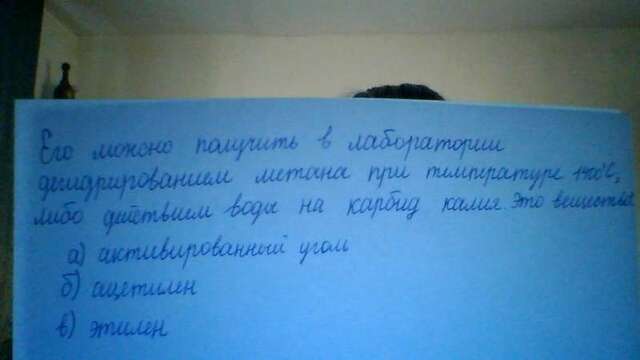 Его можно получить в лаборатории
дегидрированием метана при температуре 1400°С,
либо действием воды на карбид калия. Это вещество:
а) активированный уголь
б) ацетилен
в) этилен